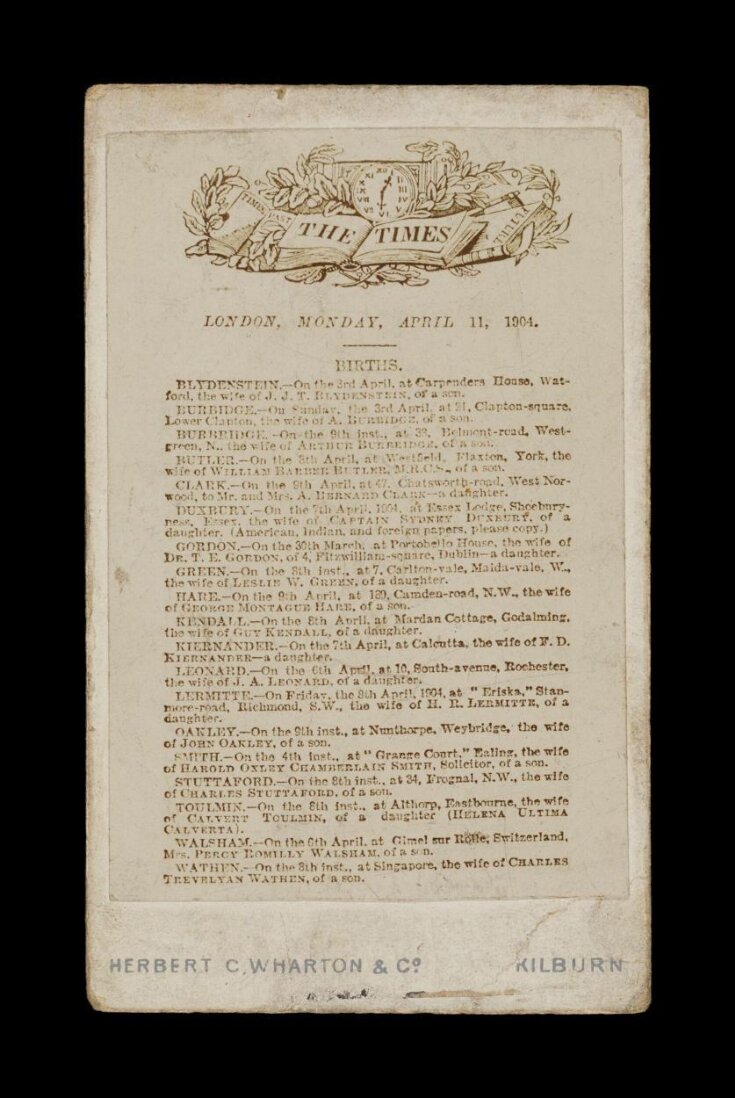 TIMES PAST
THE TIMES
FUTURE
LONDON, MONDAY, APRIL 11, 1904.
BIRTHS.
BLYDENSTEIN.—On the 3rd April, at Carpenders House, Wat-
ford, the wife of J. J. T. BLYDENSTEIN, of a son.
BURBIDGE.—On Sunday, the 3rd April, at 21, Clapton-square,
Lower Clapton, the wife of A. BURBIDGE, of a son.
BURBRIDGE.—On the 9th inst., at 33, Belmont-road, West-
green, N., the wife of ARTHUR BURBRIDGE, of a son.
BUTLER.—On the 8th April, at Westfield, Flaxton, York, the
wife of WILLIAM BARBER BUTLER, M.R.C.S., of a son.
CLARK.—On the 9th April, at 47, Chatsworth-road, West Nor-
wood, to Mr. and Mrs. A. BERNARD CLARK—a daughter.
DUXBURY.—On the 7th April, 1904, at Essex Lodge, Shoebury-
ness, Essex, the wife of CAPTAIN SYDNEY DUXBURY, of a
daughter. (American, Indian, and foreign papers, please copy.)
GORDON.—On the 30th March, at Portobello House, the wife of
DR. T. E. GORDON, of 4, Fitzwilliam-square, Dublin—a daughter.
GREEN.—On the 8th inst., at 7, Carlton-vale, Maida-vale, W.,
the wife of LESLIE W. GREEN, of a daughter.
HARE.—On the 9th April, at 189, Camden-road, N.W., the wife
of GEORGE MONTAGUE HARE, of a son.
KENDALL.—On the 8th April, at Mardan Cottage, Godalming,
the wife of GUY KENDALL, of a daughter.
KIERNANDER.—On the 7th April, at Calcutta, the wife of F. D.
KIERNANDER—a daughter.
LEONARD.—On the 6th April, at 10, South-avenue, Rochester,
the wife of J. A. LEONARD, of a daughter.
LERMITTE.—On Friday, the 8th April, 1904, at "Eriska," Stan-
more-road, Richmond, S.W., the wife of H. R. LERMITTE, of a
daughter.
OAKLEY.—On the 9th inst., at Nunthorpe, Weybridge, the wife
of JOHN OAKLEY, of a son.
SMITH.—On the 4th inst., at "Grange Court," Ealing, the wife
of HAROLD OXLEY CHAMBERLAIN SMITH, Solicitor, of a son.
STUTTAFORD.—On the 8th inst., at 34, Frognal, N.W., the wife
of CHARLES STUTTAFORD, of a son.
TOULMIN.—On the 8th inst., at Althorp, Eastbourne, the wife
of CALVERT TOULMIN, of a daughter (HELENA ULTIMA
CALVERTA).
WALSHAM.—On the 6th April, at Gimel sur Rolle, Switzerland,
Mrs. PERCY ROMILLY WALSHAM, of a son.
WATHEN.—On the 8th inst., at Singapore, the wife of CHARLES
TREVELYAN WATHEN, of a son.
HERBERT C. WHARTON & Co KILBURN